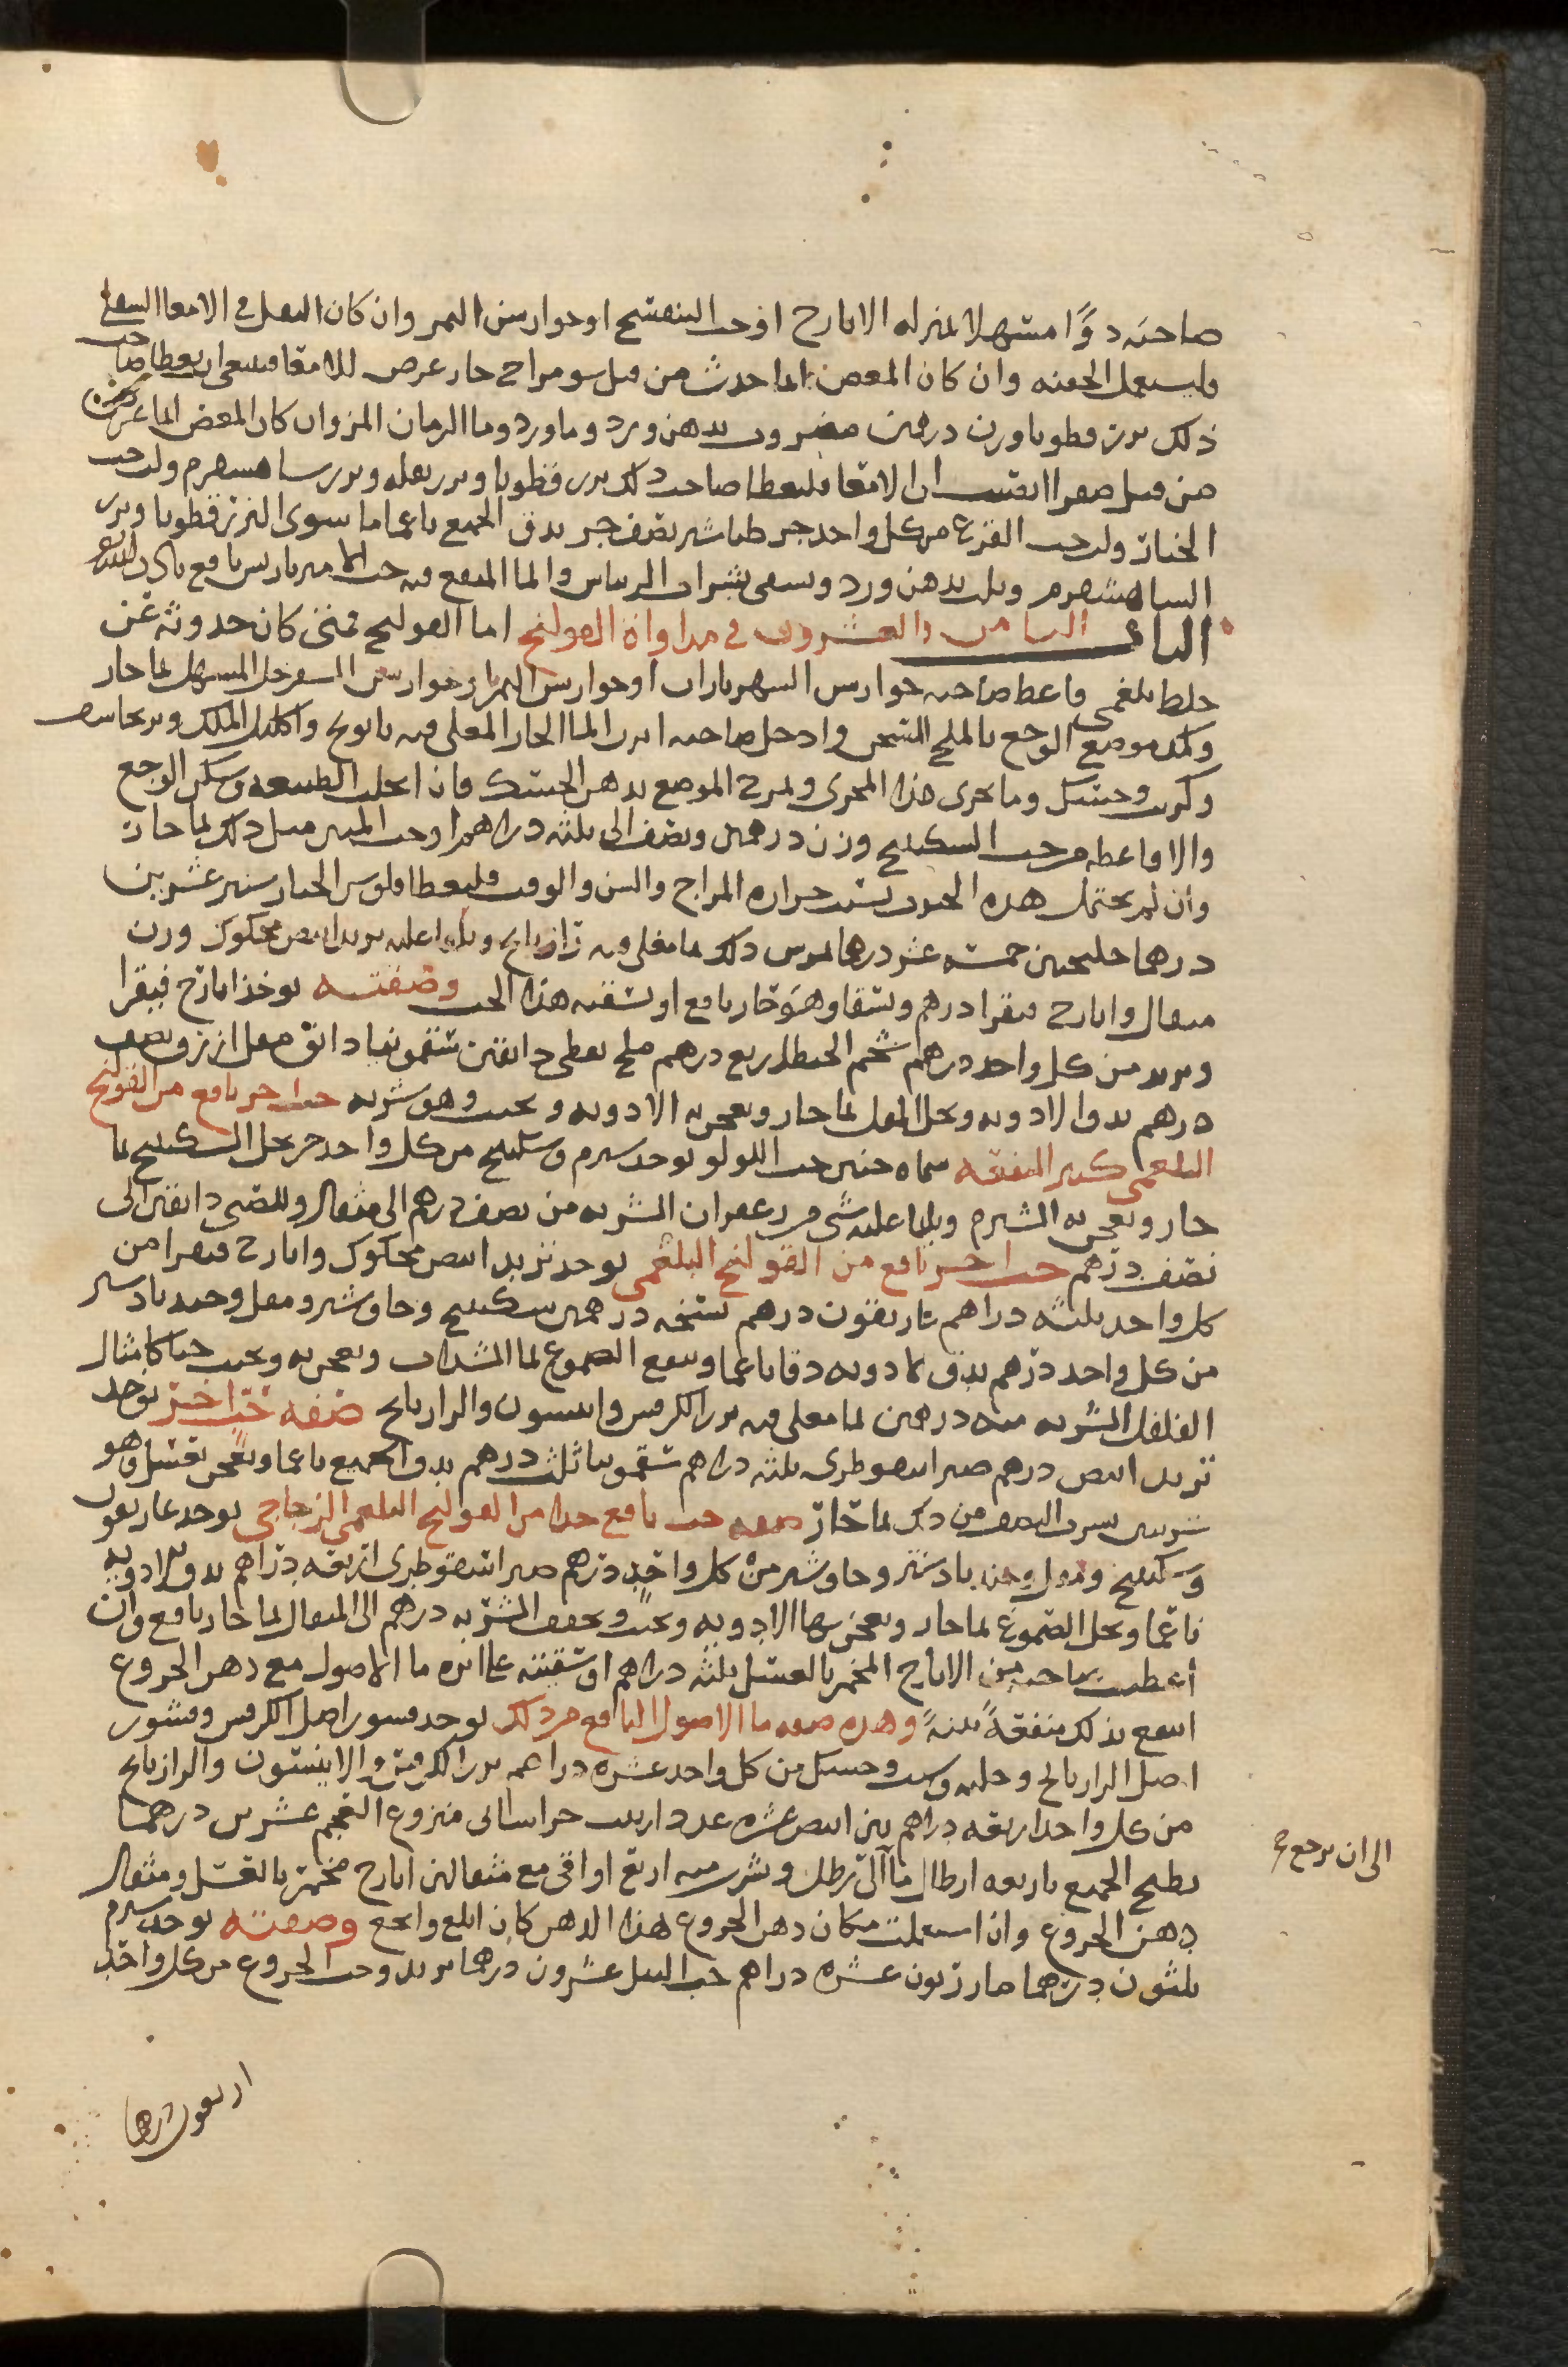 صاحبه دوًا مسهلا بمنزله الايارج او حب البنفسج او جوارشن التمر وان كان الثفل في الامعا السفلى
فليستعمل الحقنه وان كان المغص انما حدث من قبل سو مزاج حار عرض للامعا فينبغي ان يعطا صاحب
ذلك بزر قطونا وزن درهمين مضروب بدهن ورد وما ورد وما الرمان المز وان كان المغص انما عرض
من قبل صفرا انصبت الى الامعا فليعطا صاحب ذلك بزر قطونا وبزر بقله وبزر شاهسفرم ولب حب
الخيار ولب حب القرع من كل واحد جز طباشير نصف جز يدق الجميع ناعما ما سوى البزر قطونا وبزر
الشاهسفرم ويلت بدهن ورد ويسقى بشراب الريباس والما المنقع فيه حب الامير باريس نافع باذن الله
الباب الثامن والعشرون في مداواة القولنج اما القولنج فمتى كان حدوثه عن
خلط بلغمي فاعط صاحبه جوارشن الشهرياران او جوارشن التمر او جوارشن السفرجل المسهل بما حار
وكمد موضع الوجع بالملح المسخن وادخل صاحبه ابزن الما الحار المغلى فيه بابونج واكليل الملك وبرنجاسف
وكرنب وحسك وما يجرى هذا المجرى ويمرخ الموضع بدهن الحسك فان انحلت الطبيعه وسكن الوجع
والا فاعطه من حب السكبينج وزن درهمين ونصف الى ثلثه دراهم او حب المنتن مثل ذلك بما حار
وان لم يحتمل هذه الحبوب بسبب حراره المزاج والسن والوقت فليعطا فلوس الخيار شنبر عشرين
درهما جلنجبين خمسه عشر درهما يمرس ذلك بما مغلى فيه رازيانج ويلقا عليه تربد ابيض محكوك وزن
مثقال وايارج فيقرا درهم ويسقا وهو حار نافع او تسقيه هذا الحب وصفته يوخذ ايارج فيقرا
وتربد من كل واحد درهم شحم الحنظل ربع درهم ملح نفطي دانقين سقمونيا دانق مقل ازرق نصف
درهم يدق الادويه ويحل المقل بما حار ويعجن به الادويه ويحبب وهو شربه حب اخر نافع من القولنج
البلغمي كثير المنفعه سماه حنين حب اللولو يوخذ شبرم وسكبينج من كل واحد جز يحل السكبينج بما
حار ويعجن به الشبرم ويلقا عليه شي من زعفران الشربه من نصف درهم الى مثقال وللصبي دانقين الى
نصف درهم حب اخر نافع من القولنج البلغمي يوخذ تربد ابيض محكوك وايارج فيقرا من
كل واحد ثلثه دراهم غاريقون درهم درهمين سكبينج وجاوشير ومقل وجند بادستر
من كل واحد درهم يدق الادويه دقا ناعما وينقع الصموغ بما السداب ويعجن به ويحبب حبا كامثال
الفلفل الشربه منه درهمين بما مغلى فيه بزر الكرفس وانيسون والرازيانج صفه حب اخر يوخذ
تربد ابيض درهم صبر اسقوطرى ثلثه دراهم سقمونيا ثلث درهم يدق الجميع ناعما ويعجن بعسل وهو
شربتين يشرب النصف من ذلك بما حار صفه حب نافع جدا من القولنج البلغمي الزجاجي يوخذ غاريقون
وسكبينج ومقل وجند بادستر وجاوشير من كل واحد درهم صبر اسقوطرى اربعه دراهم يدق الادويه
ناعما ويحل الصموغ بما حار ويعجن بها الادويه ويحبب ويجفف الشربه درهم الى المثقال بما حار نافع وان
اعطيت صاحبه من الايارج المخمر بالعسل ثلثه دراهم او سقيته على اثره ما الاصول مع دهن الخروع
انتفع بذلك منفعةً بينةً وهذه صفه ما الاصول النافع من ذلك يوخذ قشور اصل الكرفس وقشور
اصل الرازيانج وحلبه وحسك من كل واحد عشره دراهم بزر الكرفس والانيسون والرازيانج
من كل واحد اربعه دراهم تين ابيض عشره عدد زبيب خراساني منزوع العجم عشرين درهما
يطبخ الجميع باربعه ارطال ما الى رطل ويشرب منه اربع اواقى مع مثقالين ايارج مخمر بالعسل ومثقال
دهن الخروع وان استعملت مكان دهن الخروع هذا الدهن كان ابلغ وانجع وصفته يوخذ شبرم
ثلثون درهما مازريون عشره دراهم حب النيل عشرون درهما تربد وحب الخروع من كل واحد
الى ان يرجع
اربعون درهما